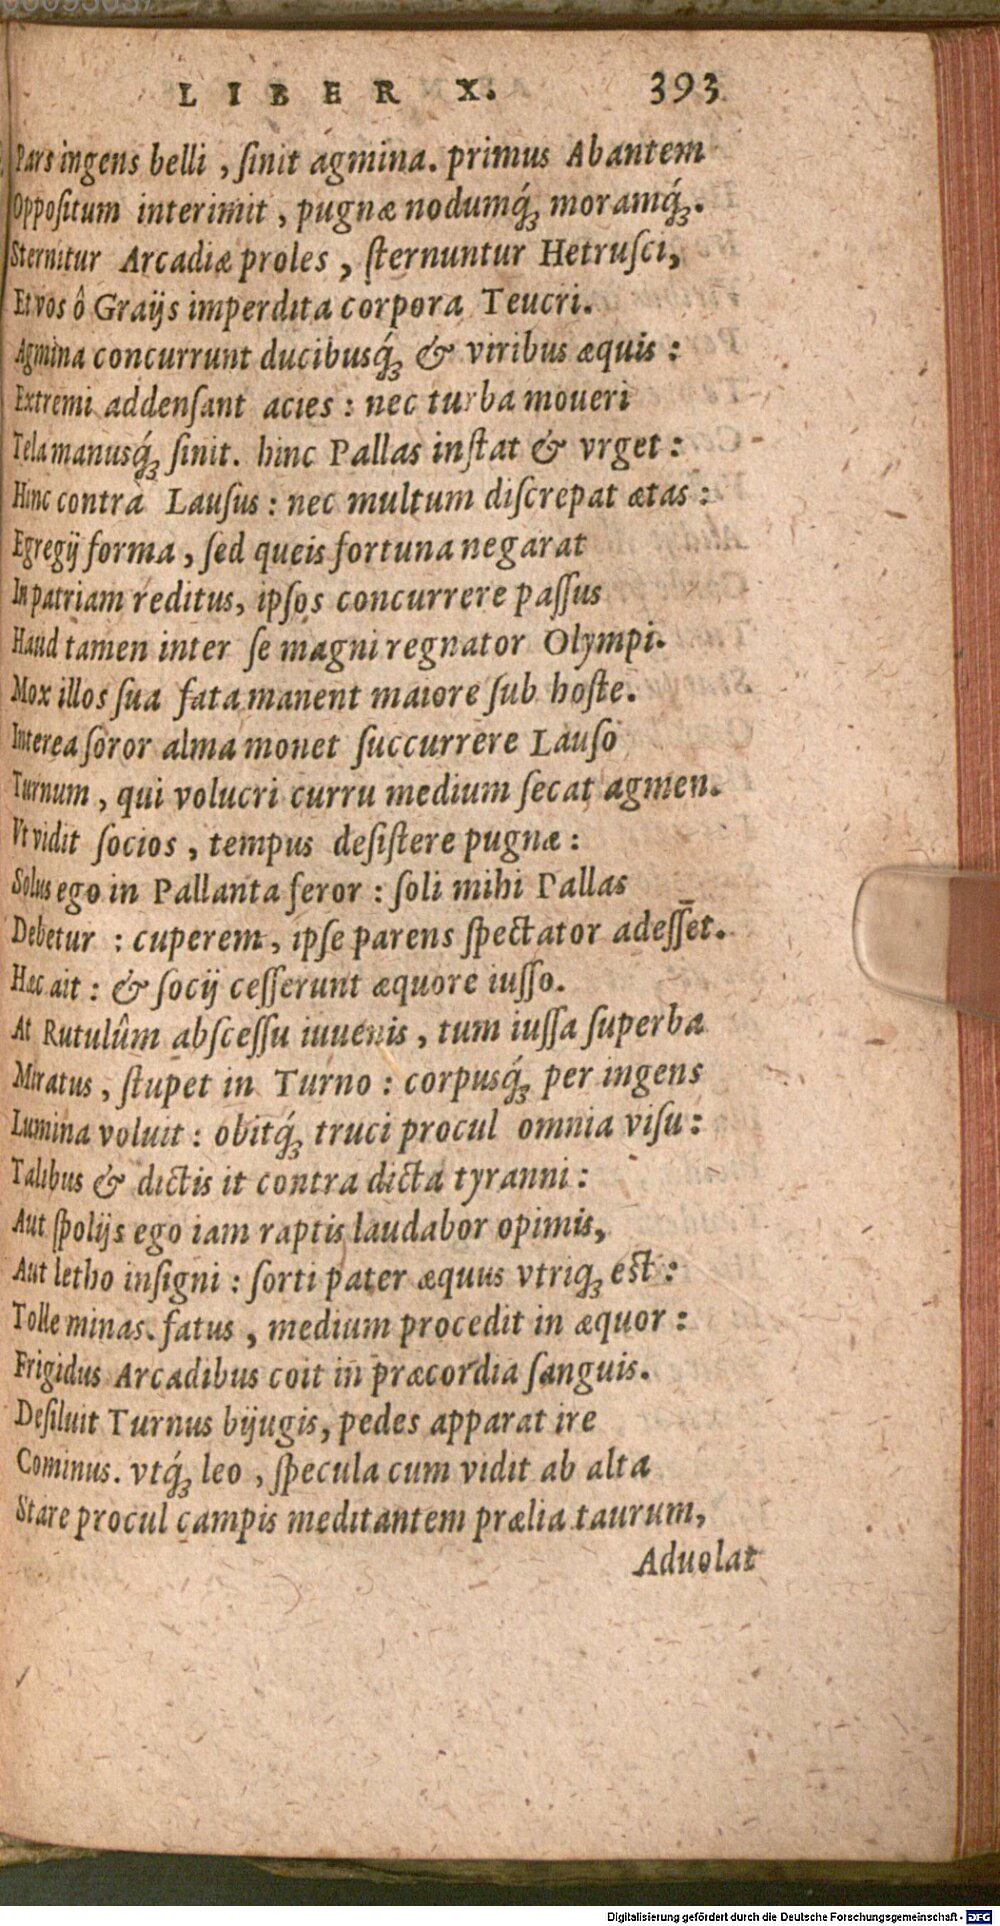 LIBER X. 393
Pars ingens belli, ſinit agmina. primus Abantem
Oppoſitum interimit, pugnæ nodumq́; moramq́;.
Sternitur Arcadiæ proles, ſternuntur Hetruſci,
Et vos ô Graijs imperdita corpora Teucri.
Agmina concurrunt ducibusq́; & viribus æquis:
Extremi addenſant acies: nec turba moueri
Tela manusq́; ſinit. hinc Pallas inſtat & vrget:
Hinc contrà Lauſus: nec multum diſcrepat ætas:
Egregij forma, ſed queis fortuna negarat
In patriam reditus, ipſos concurrere paſſus
Haud tamen inter ſe magni regnator Olympi.
Mox illos ſua fata manent maiore ſub hoſte.
Interea ſoror alma monet ſuccurrere Lauſo
Turnum, qui volucri curru medium ſecat agmen.
Vt vidit ſocios, tempus deſiſtere pugnæ:
Solus ego in Pallanta feror: ſoli mihi Pallas
Debetur: cuperem, ipſe parens ſpectator adeſſet.
Hæc ait: & ſocij ceſſerunt æquore iuſſo.
At Rutulûm abſceſſu iuuenis, tum iuſſa ſuperba
Miratus, ſtupet in Turno: corpusq́; per ingens
Lumina voluit: obitq́; truci procul omnia viſu:
Talibus & dictis it contra dicta tyranni:
Aut ſpolijs ego iam raptis laudabor opimis,
Aut letho inſigni: ſorti pater æquus vtriq; eſt:
Tolle minas. fatus, medium procedit in æquor:
Frigidus Arcadibus coit in præcordia ſanguis.
Deſiluit Turnus bijugis, pedes apparat ire
Cominus. vtq́; leo, ſpecula cum vidit ab alta
Stare procul campis meditantem prælia taurum,
Aduolat
Digitalisierung gefördert durch die Deutsche Forschungsgemeinschaft - DFG